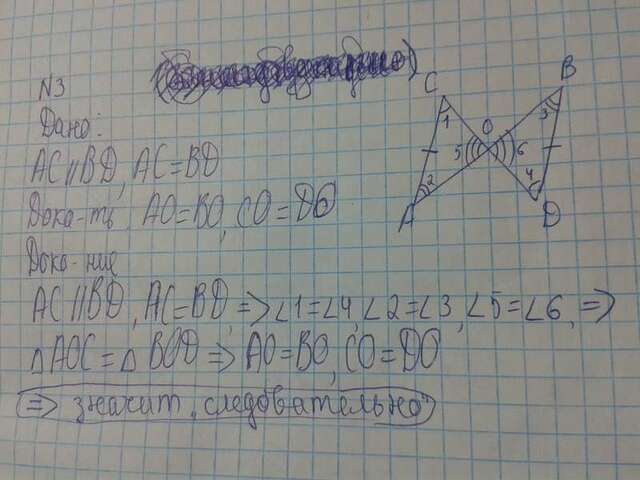 N3
Дано:
AC || BD, AC = BD
Дока-ть, AO = BO, CO = DO
Дока-ние
AC || BD, AC = BD, => ∠1 = ∠4, ∠2 = ∠3, ∠5 = ∠6, =>
△AOC = △BOD => AO = BO, CO = DO
=> значит, следовательно
C
B
1
O
3
5
6
2
4
A
D